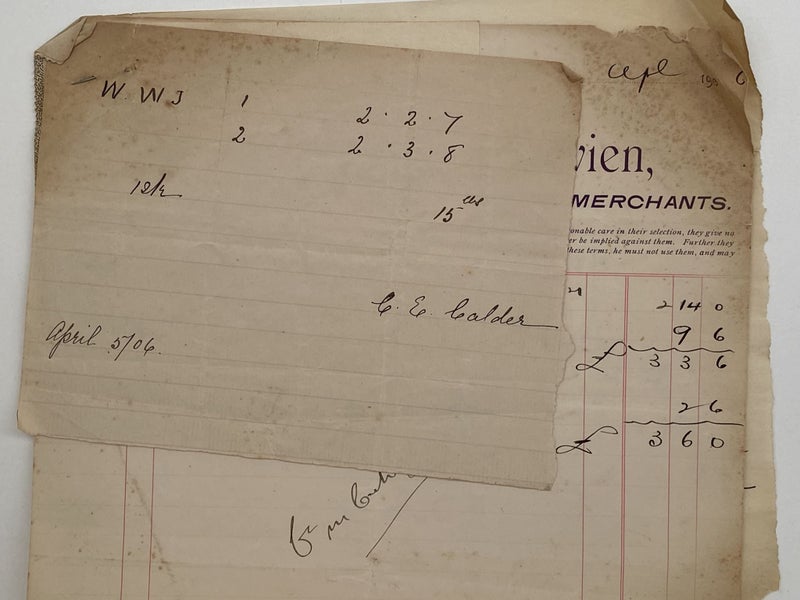 W. W J 1 2 · 2 · 7
2 2 · 3 · 8
12½ 15
C. E. Calder
April 5/06.
190 6
vien,
MERCHANTS.
onable care in their selection, they give no
er be implied against them. Further they
these terms, he must not use them, and may
2 14 0
9 6
£ 3 3 6
2 6
£ 3 6 0